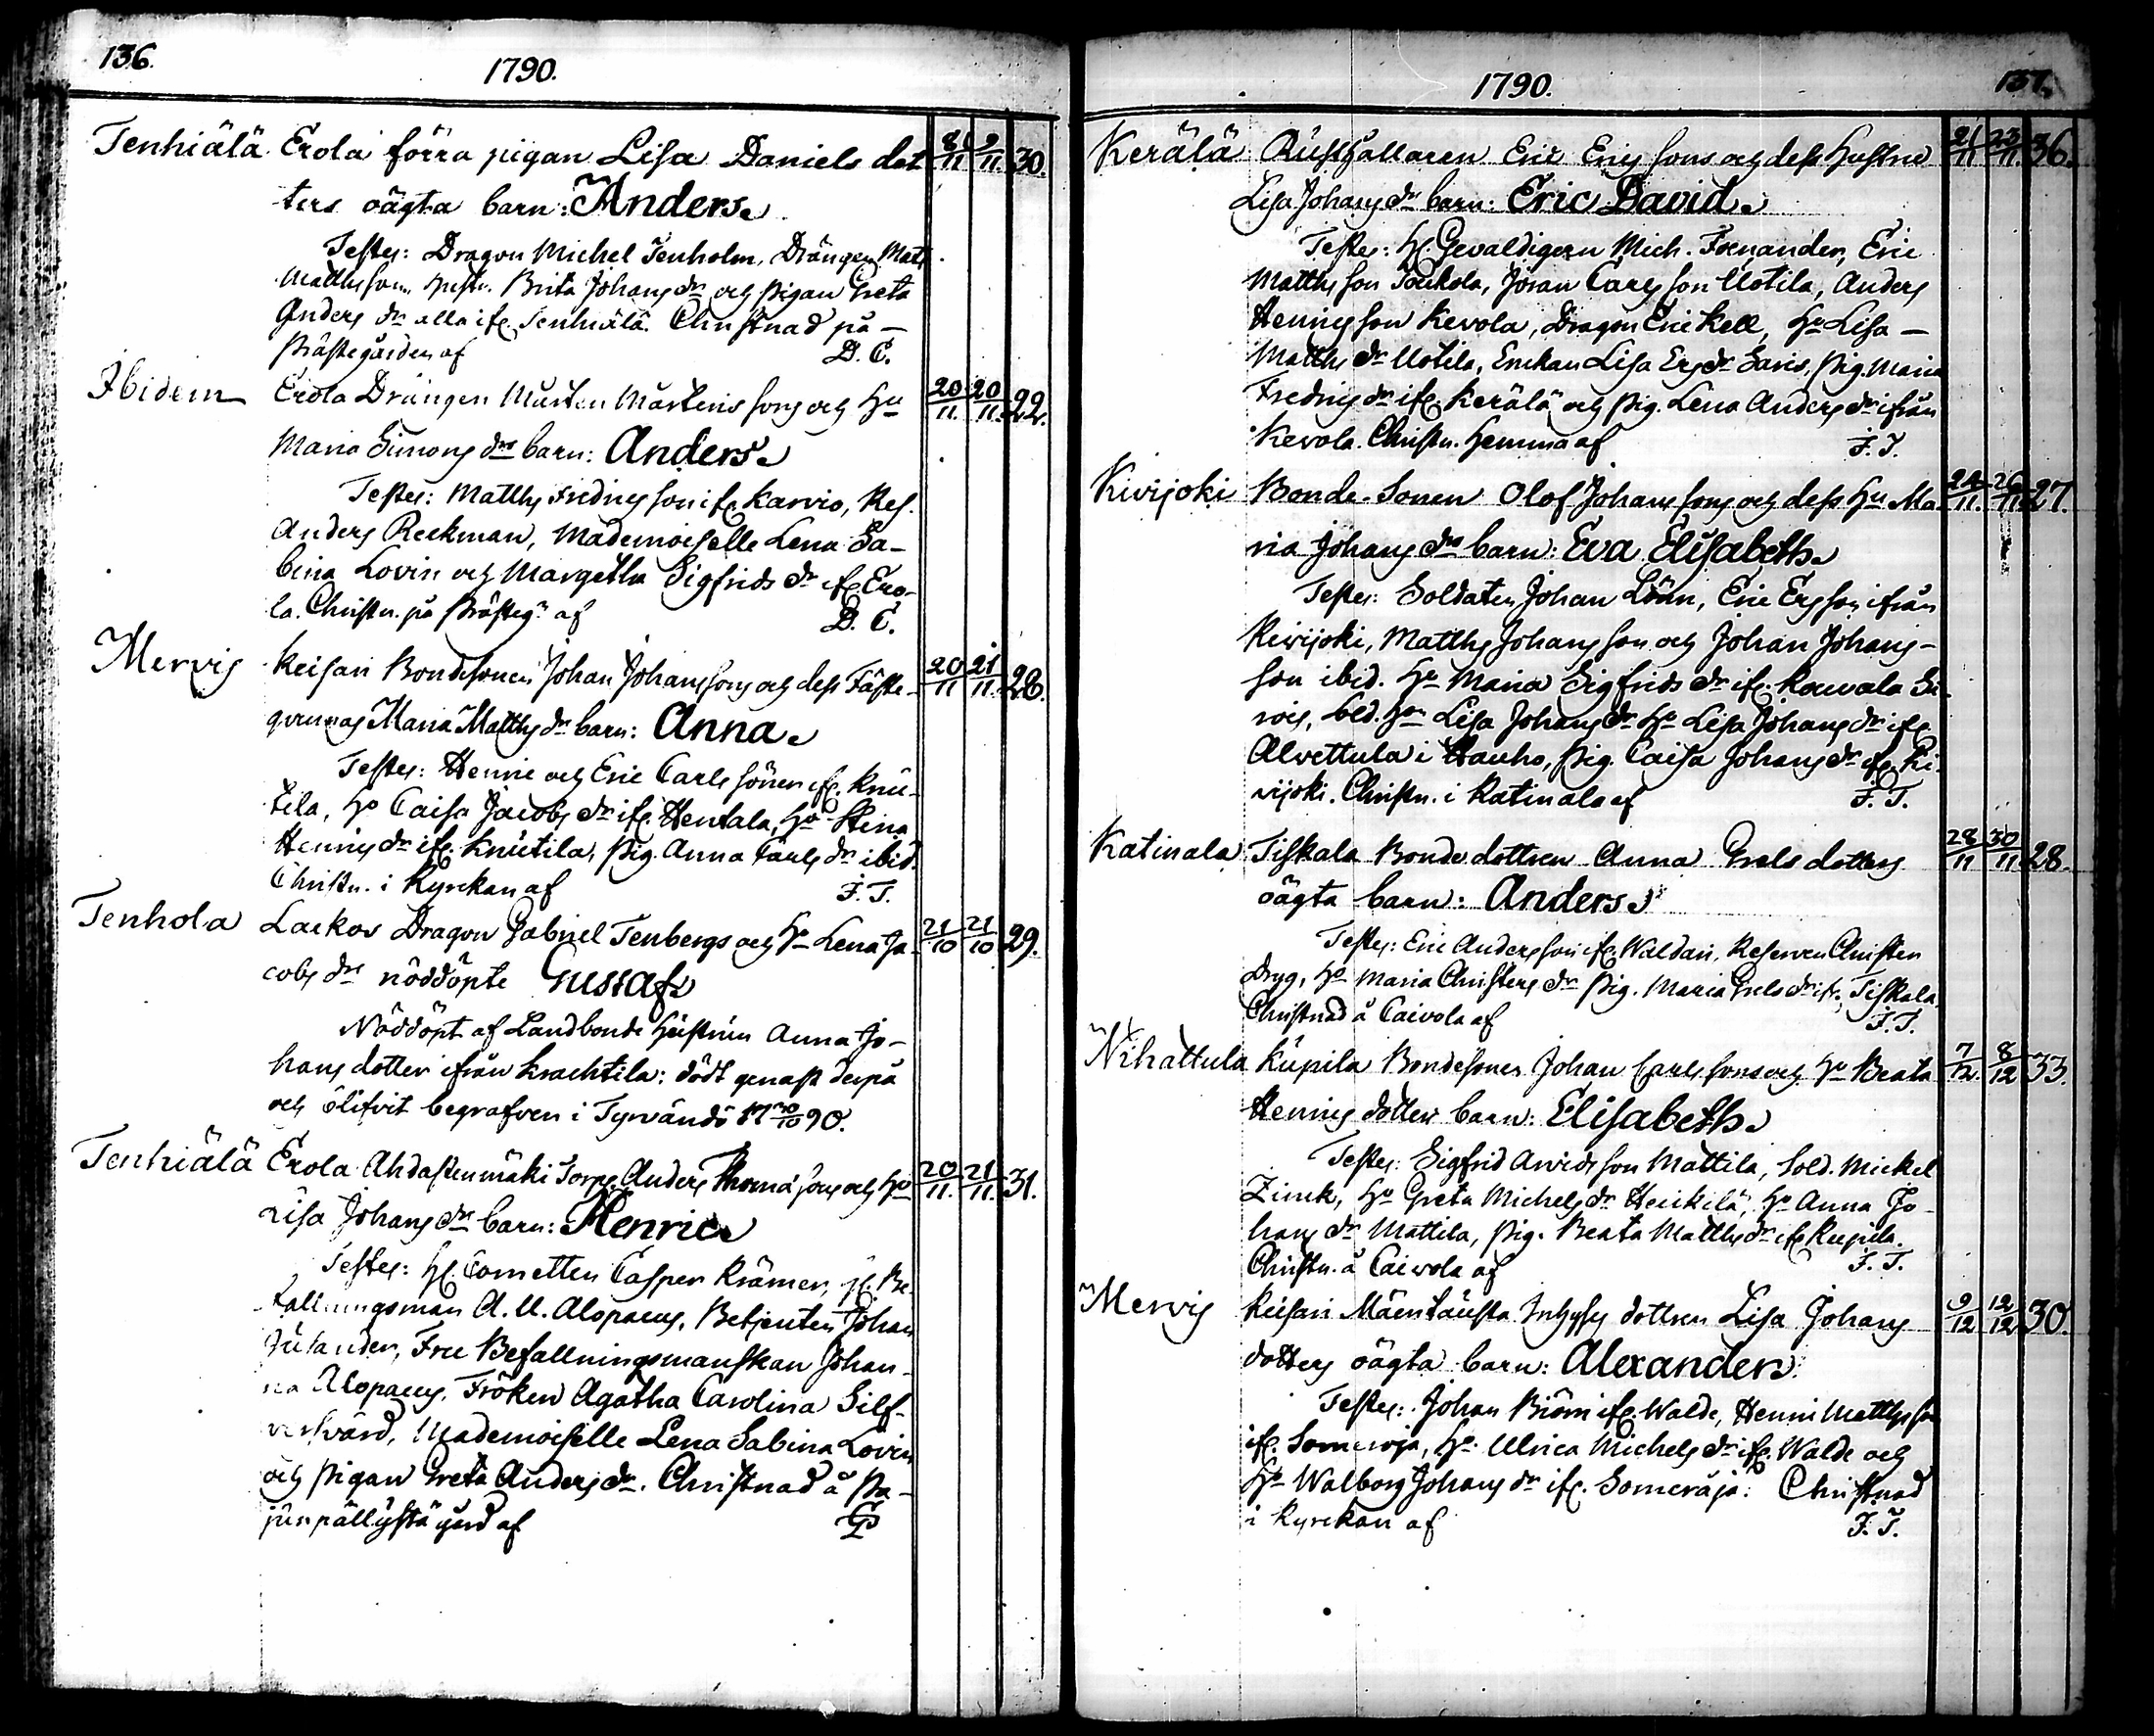 136.
1790.
Tenhiälä Erola förra pigan Lisa Daniels dot 8/11 9/11. 30.
ters oägta barn: Anders.
Testes: Dragon Michel Tenholm, Drängen Matts
Matthsson, hustr. Brita Johans dr och pigan Greta
Anders dr alla ifr. Tenhiälä. Christnad på
Prästegården af D. C.
Ibidem Erola Drängen Mårten Mårtens sons och Hu 20/11. 20/11. 22.
Maria Simons drs barn: Anders.
Testes: Matths Fredrics son ifr. Karvio, Res.
Anders Reekman, Mademoiselle Lena Sa-
bina Lovin och Margetha Sigfrids dr ifr. Ero-
la. Christn. på Prästeg. af D. C.
Mervis Keisari Bondesonen Johan Johans sons och dess Fäste- 20/11 21/11. 28.
qvinnas Maria Matths dr barn: Anna.
Testes: Henric och Eric Carls söner ifr. Knu-
tila, Ho Caisa Jacobs dr ifr. Hentala, Ho Stina
Henrics dr ifr. Knutila, pig. Anna Carls dr ibid.
Christn. i Kyrckan af F. T.
Tenhola Lackos Dragon Gabriel Tenbergs och Ho Lena Ja- 21/10 21/10 29.
cobs dr nöddöpte Gustaf.
Nöddöpt af Landbonde Hustrun Anna Jo-
hans dotter ifrån Krachtila: dödt genast derpå
och blifvit begrafven i Tyrvändö 17 30/10 90.
Tenhiälä Erola Ahdastenmäki Torp. Anders Thomæ sons och Ho 20/11. 21/11. 31.
Lisa Johans drs barn: Henric.
Testes: H. Cornetten Casper Krämer, H. Be-
fallningsman A. U. Alopaeus, Betjenten Johan
Fru Befallningsmanskan Johan-
na Alopaeus, Fröken Agatha Carolina Silf-
versvärd, Mademoiselle Lena Sabina Lovin
och Pigan Greta Anders dr. Christnad å Pa-
junpällystä gård af
1790.
137.
Kerälä Rusthållaren Eric Erics sons och dess Hustrus 21/11 23/11. 36.
Lisa Johans dr barn: Eric David.
Testes: H. Gevaldigern Mich. Fornander, Eric
Matths son Toukola, Jöran Carls son Uotila, Anders
Henrics son Kevola, Dragon Eric Kell, Ho Lisa
Matths dr Uotila, Enckan Lisa Ers dr Saris, Pig. Maria
Fredrics dr ifr. Kerälä och Pig. Lena Anders dr ifrån
Kevola. Christn. hemma af F. T.
Kivijoki Bonde-Sonen Olof Johans sons och dess Hu Ma- 24/11. 26/11 27.
ria Johans drs barn: Eva Elisabeth.
Testes: Soldaten Johan Löön, Eric Ers son ifrån
Kivijoki, Matths Johans son och Johan Johans-
son ibid. Ho Maria Sigfrids dr ifr.
Lisa Johans dr Ho Lisa Johans dr ifr.
Alvettula i Hauho, Pig. Caisa Johans dr ifr. Ki-
vijoki. Christn. i Katinala af F. T.
Katinala Tiskala Bonde dottren Anna Grels dotters 28/11 30/11 28.
oägta barn: Anders.
Testes: Eric Anders son ifr. Waldari, Reserven Christen
Dryg, Ho Maria Christers dr Pig. Maria Grels dr ifr. Tiskala
Christnad å Caivola af F. T.
Nihattula Kupila Bondesonen Johan Carls sons och Ho Beata 7/12. 8/12 33.
Henrics dotters barn: Elisabeth.
Testes: Sigfrid Arvids son Mattila, Sold. Mickel
Zinck, Ho Greta Michels dr Heickilä, Ho Anna Jo-
hans dr Mattila, Pig. Beata Matths dr ifr. Kupila.
Christn. å Caivola af F. T.
Mervis Keisari Mäentausta Inhyses dottren Lisa Johans 9/12 12/12 30.
dotters oägta barn: Alexander.
Testes: Johan Biörn ifr. Walde, Henric Matths son
ifr. Someroja, Ho. Ulrica Michels dr ifr. Walde och
Ho Walborg Johans dr ifr. Someråja. Christnad
i Kyrckan af F. T.